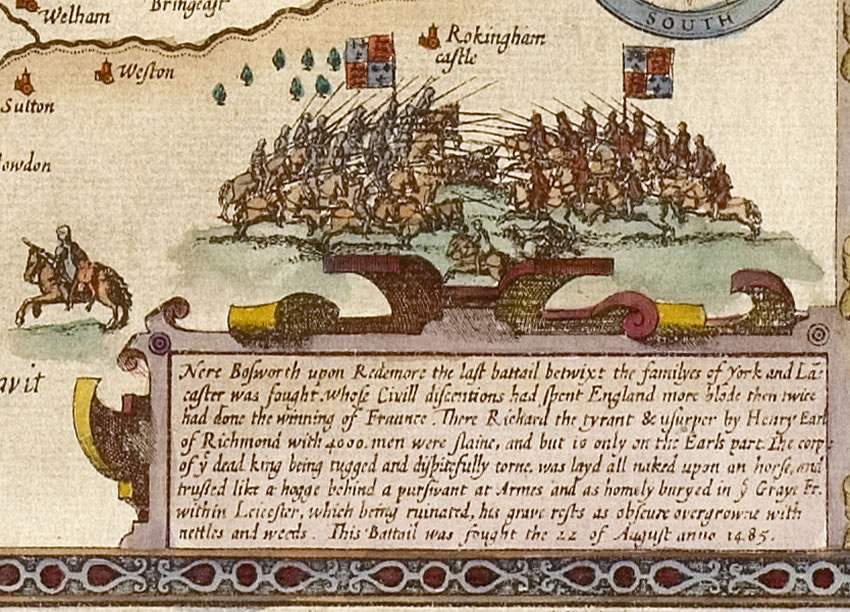 Welham
Bringeast
SOUTH
Rokingham
castle
Weston
Sutton
owdon
avit
Nere Bosworth upon Redemore the last battail betwixt the familyes of York and Lā=
caster was fought, whose Civill discentions had spent England more blode then twice
had done the winning of Fraunce. There Richard the tyrant & usurper by Henry Earl
of Richmond with 4000. men were slaine, and but 10 only on the Earls part. The corps
of ẏ dead king being tugged and dispitefully torne, was layd all naked upon an horse, and
trussed like a hogge behind a pursivant at Armes and as homely buryed in ẏ Graye Fr.
within Leicester, which being ruinated, his grave rests as obscure overgrowne with
nettles and weeds. This Battail was fought the 22 of August anno 1485.